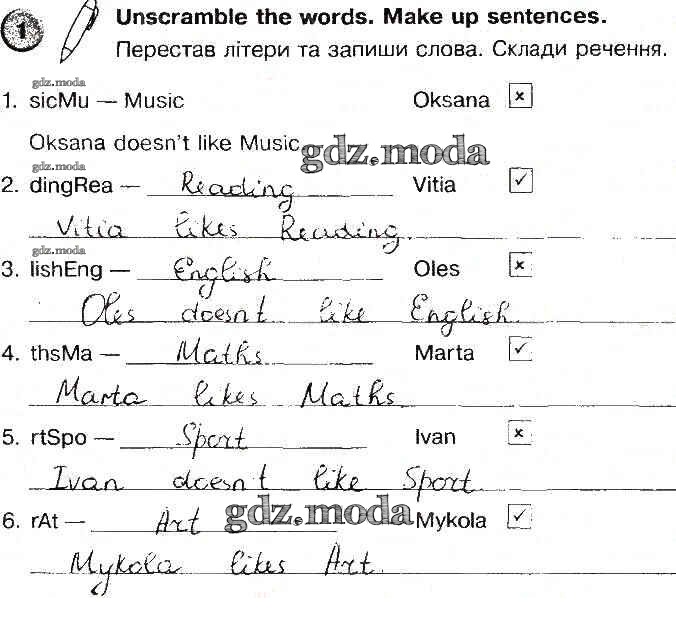 1 Unscramble the words. Make up sentences.
Перестав літери та запиши слова. Склади речення.
gdz.moda
1. sicMu — Music Oksana
Oksana doesn't like Music
gdz.moda
gdz.moda
2. dingRea — Reading Vitia
Vitia likes Reading.
gdz.moda
3. lishEng — English Oles
Oles doesn't like English.
4. thsMa — Maths Marta
Marta likes Maths
5. rtSpo — Sport Ivan
Ivan doesn't like Sport
gdz.moda
6. rAt — Art Mykola
Mykola likes Art.